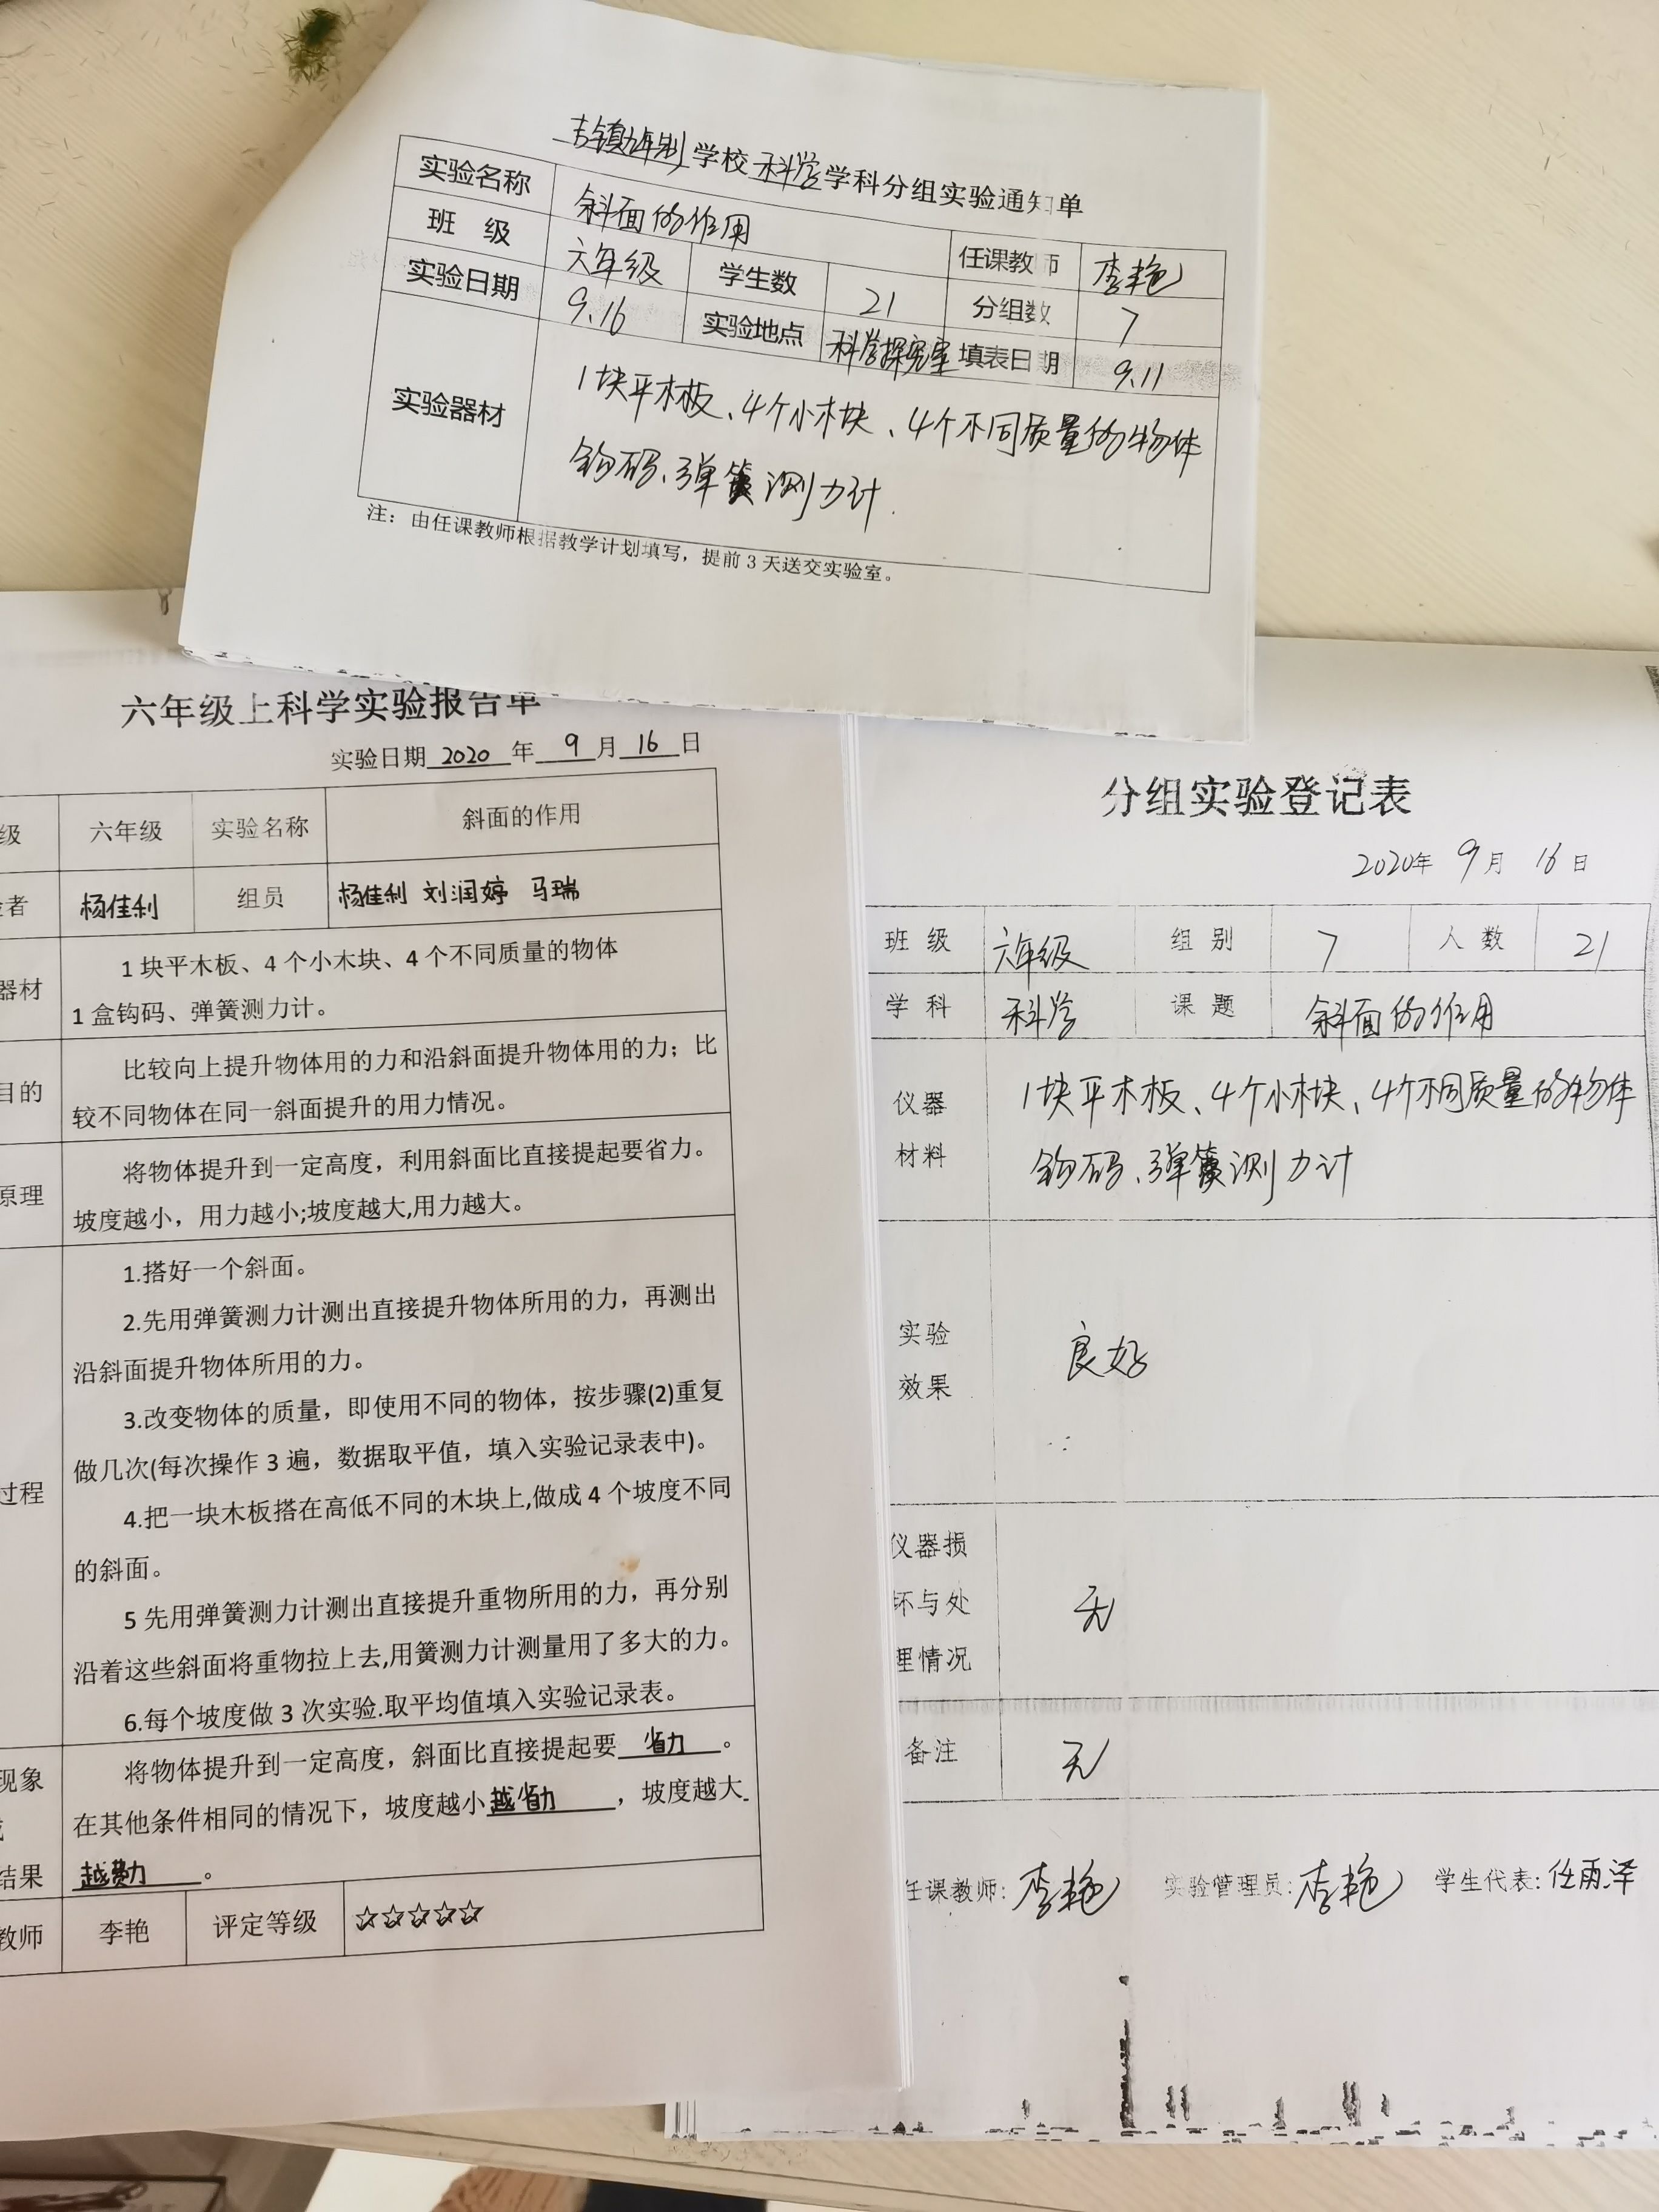 吉镇九年制学校科学学科分组实验通知单
实验名称 斜面的作用 任课教师 李艳
班 级 六年级 学生数 21 分组数 7
实验日期 9.16 实验地点 科学探究室 填表日期 9.11
实验器材 1块平木板、4个小木块、4个不同质量的物体
钩码、弹簧测力计.
注：由任课教师根据教学计划填写，提前3天送交实验室。
六年级上科学实验报告单
实验日期 2020 年 9 月 16 日
级 六年级 实验名称 斜面的作用
者 杨佳利 组员 杨佳利 刘润婷 马瑞
器材 1块平木板、4个小木块、4个不同质量的物体
1盒钩码、弹簧测力计。
目的 比较向上提升物体用的力和沿斜面提升物体用的力；比
较不同物体在同一斜面提升的用力情况。
原理 将物体提升到一定高度，利用斜面比直接提起要省力。
坡度越小，用力越小;坡度越大,用力越大。
过程 1.搭好一个斜面。
2.先用弹簧测力计测出直接提升物体所用的力，再测出
沿斜面提升物体所用的力。
3.改变物体的质量，即使用不同的物体，按步骤(2)重复
做几次(每次操作3遍，数据取平值，填入实验记录表中)。
4.把一块木板搭在高低不同的木块上,做成4个坡度不同
的斜面。
5先用弹簧测力计测出直接提升重物所用的力，再分别
沿着这些斜面将重物拉上去,用簧测力计测量用了多大的力。
6.每个坡度做3次实验.取平均值填入实验记录表。
现象 将物体提升到一定高度，斜面比直接提起要 省力 。
在其他条件相同的情况下，坡度越小 越省力 ，坡度越大
结果 越费力 。
教师 李艳 评定等级 ☆☆☆☆☆
分组实验登记表
2020年 9月 16日
班级 六年级 组别 7 人数 21
学科 科学 课题 斜面的作用
仪器材料 1块平木板、4个小木块、4个不同质量的物体
钩码、弹簧测力计
实验效果 良好
仪器损坏与处理情况 无
备注 无
任课教师: 李艳 实验管理员: 李艳 学生代表: 任雨泽